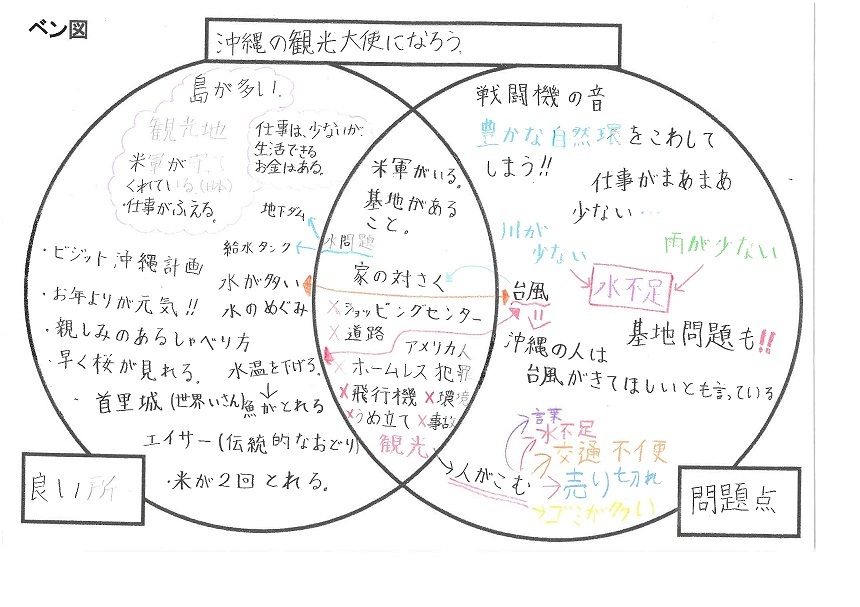 ベン図
沖縄の観光大使になろう.
島が多い.
観光地
米軍が守って
くれている(日本)
・仕事がふえる.
仕事は、少ないが、
生活できる
お金はある.
地下ダム
給水タンク
・ビジット沖縄計画
水が多い
・お年よりが元気!!
水のめぐみ
・親しみのあるしゃべり方
・早く桜が見れる.
水温を下げる.
↓
・首里城(世界いさん)
魚がとれる
エイサー(伝統的なおどり)
・米が2回とれる.
良い所
米軍がいる.
基地がある
こと.
水問題
家の対さく
×ショッピングセンター
×道路
アメリカ人
×ホームレス 犯罪
×飛行機 ×環境
×うめ立て ×事故
観光
戦闘機の音
豊かな自然環をこわして
しまう!!
仕事がまあまあ
少ない…
川が
少ない
雨が少ない
水不足
台風
基地問題も!!
沖縄の人は
台風がきてほしいとも言っている
言葉
水不足
交通 不便
→人がこむ
→売り切れ
→ゴミが多い
問題点